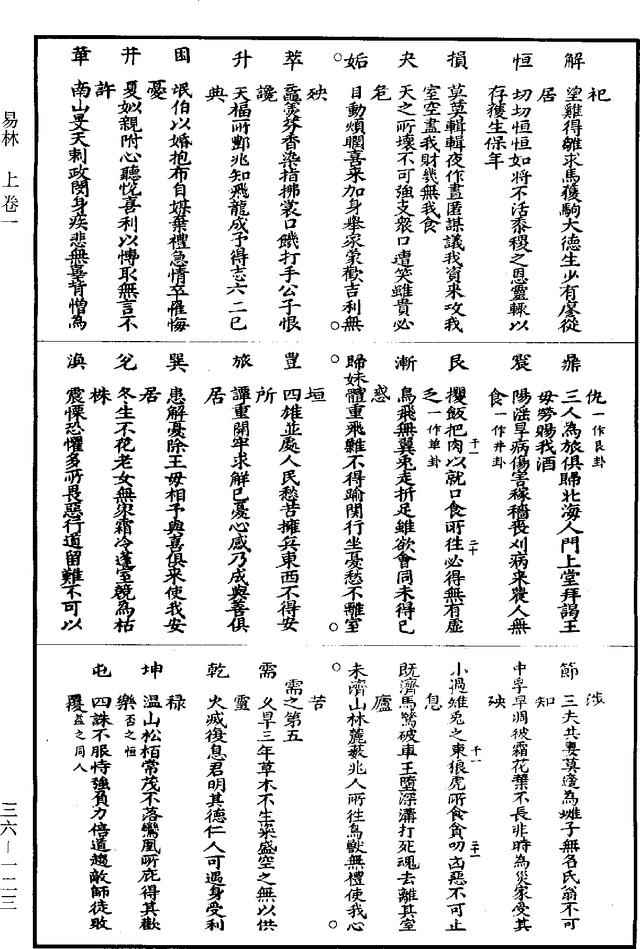 易林 上卷一
祀
解 望雞得雛求馬獲駒大德生少有廖從
居
恒 切切恒恒如將不活黍稷之恩靈輒以
存獲生保年
損 莫莫輯輯夜作晝匿謀議我資來攻我
室空盡我財幾無我食
夬 天之所壞不可強支衆口遭笑雖貴必
危
姤 目動煩瞤喜來加身舉家蒙歡吉利無
殃
萃 黿羹芬香染指拂裳口饑打手公子恨
讒
升 天福所鄷兆知飛龍成予得志六二已
典
困 氓伯以婚抱布自媒棄禮急情卒罹悔
憂
井 夏姒親附心聽悅喜利以博取無言不
許
革 南山旻天刺政閔身疾悲無辜背憎為
仇一作艮卦
鼎 三人為旅俱歸北海人門上堂拜謁王
母勞賜我酒
震 陽淫旱病傷害稼穡喪刈病來農人無
食一作井卦
艮 攫飯把肉以就口食所往必得無有虛
乏一作單卦
漸 鳥飛無翼兔走折足雖欲會同未得已
惑
歸妹體重飛難不得踰関行坐憂愁不離室
垣
豐 四雄並處人民愁苦擁兵東西不得安
所
旅 譚重開牢求解已憂心感乃成與善俱
居
巽 患解憂除王母相予與喜俱來使我安
居
兌 冬生不花老女無家霜冷蓬室競為枯
株
渙 震慄恐懼多所畏惡行道留難不可以
涉
節 三夫共妻莫適為雌子無名氏翁不可
知
中孚早凋被霜花葉不長非時為災家受其
殃
小過雉兔之東狼虎所食貪叨凶惡不可止
息
既濟馬驚破車王墮深溝打死魂去離其室
廬
未濟山林麓藪非人所往鳥獸無禮使我心
苦
需之第五
需 久旱三年草木不生粢盛空乏無以供
靈
乾 火滅復息君明其德仁人可遇身受利
祿
坤 溫山松栢常茂不落鸞凰所庇得其歡
樂否之恒
屯 四誅不服恃強負力倍道趨敵師徒敗
覆蓋之同人
三六—一二三